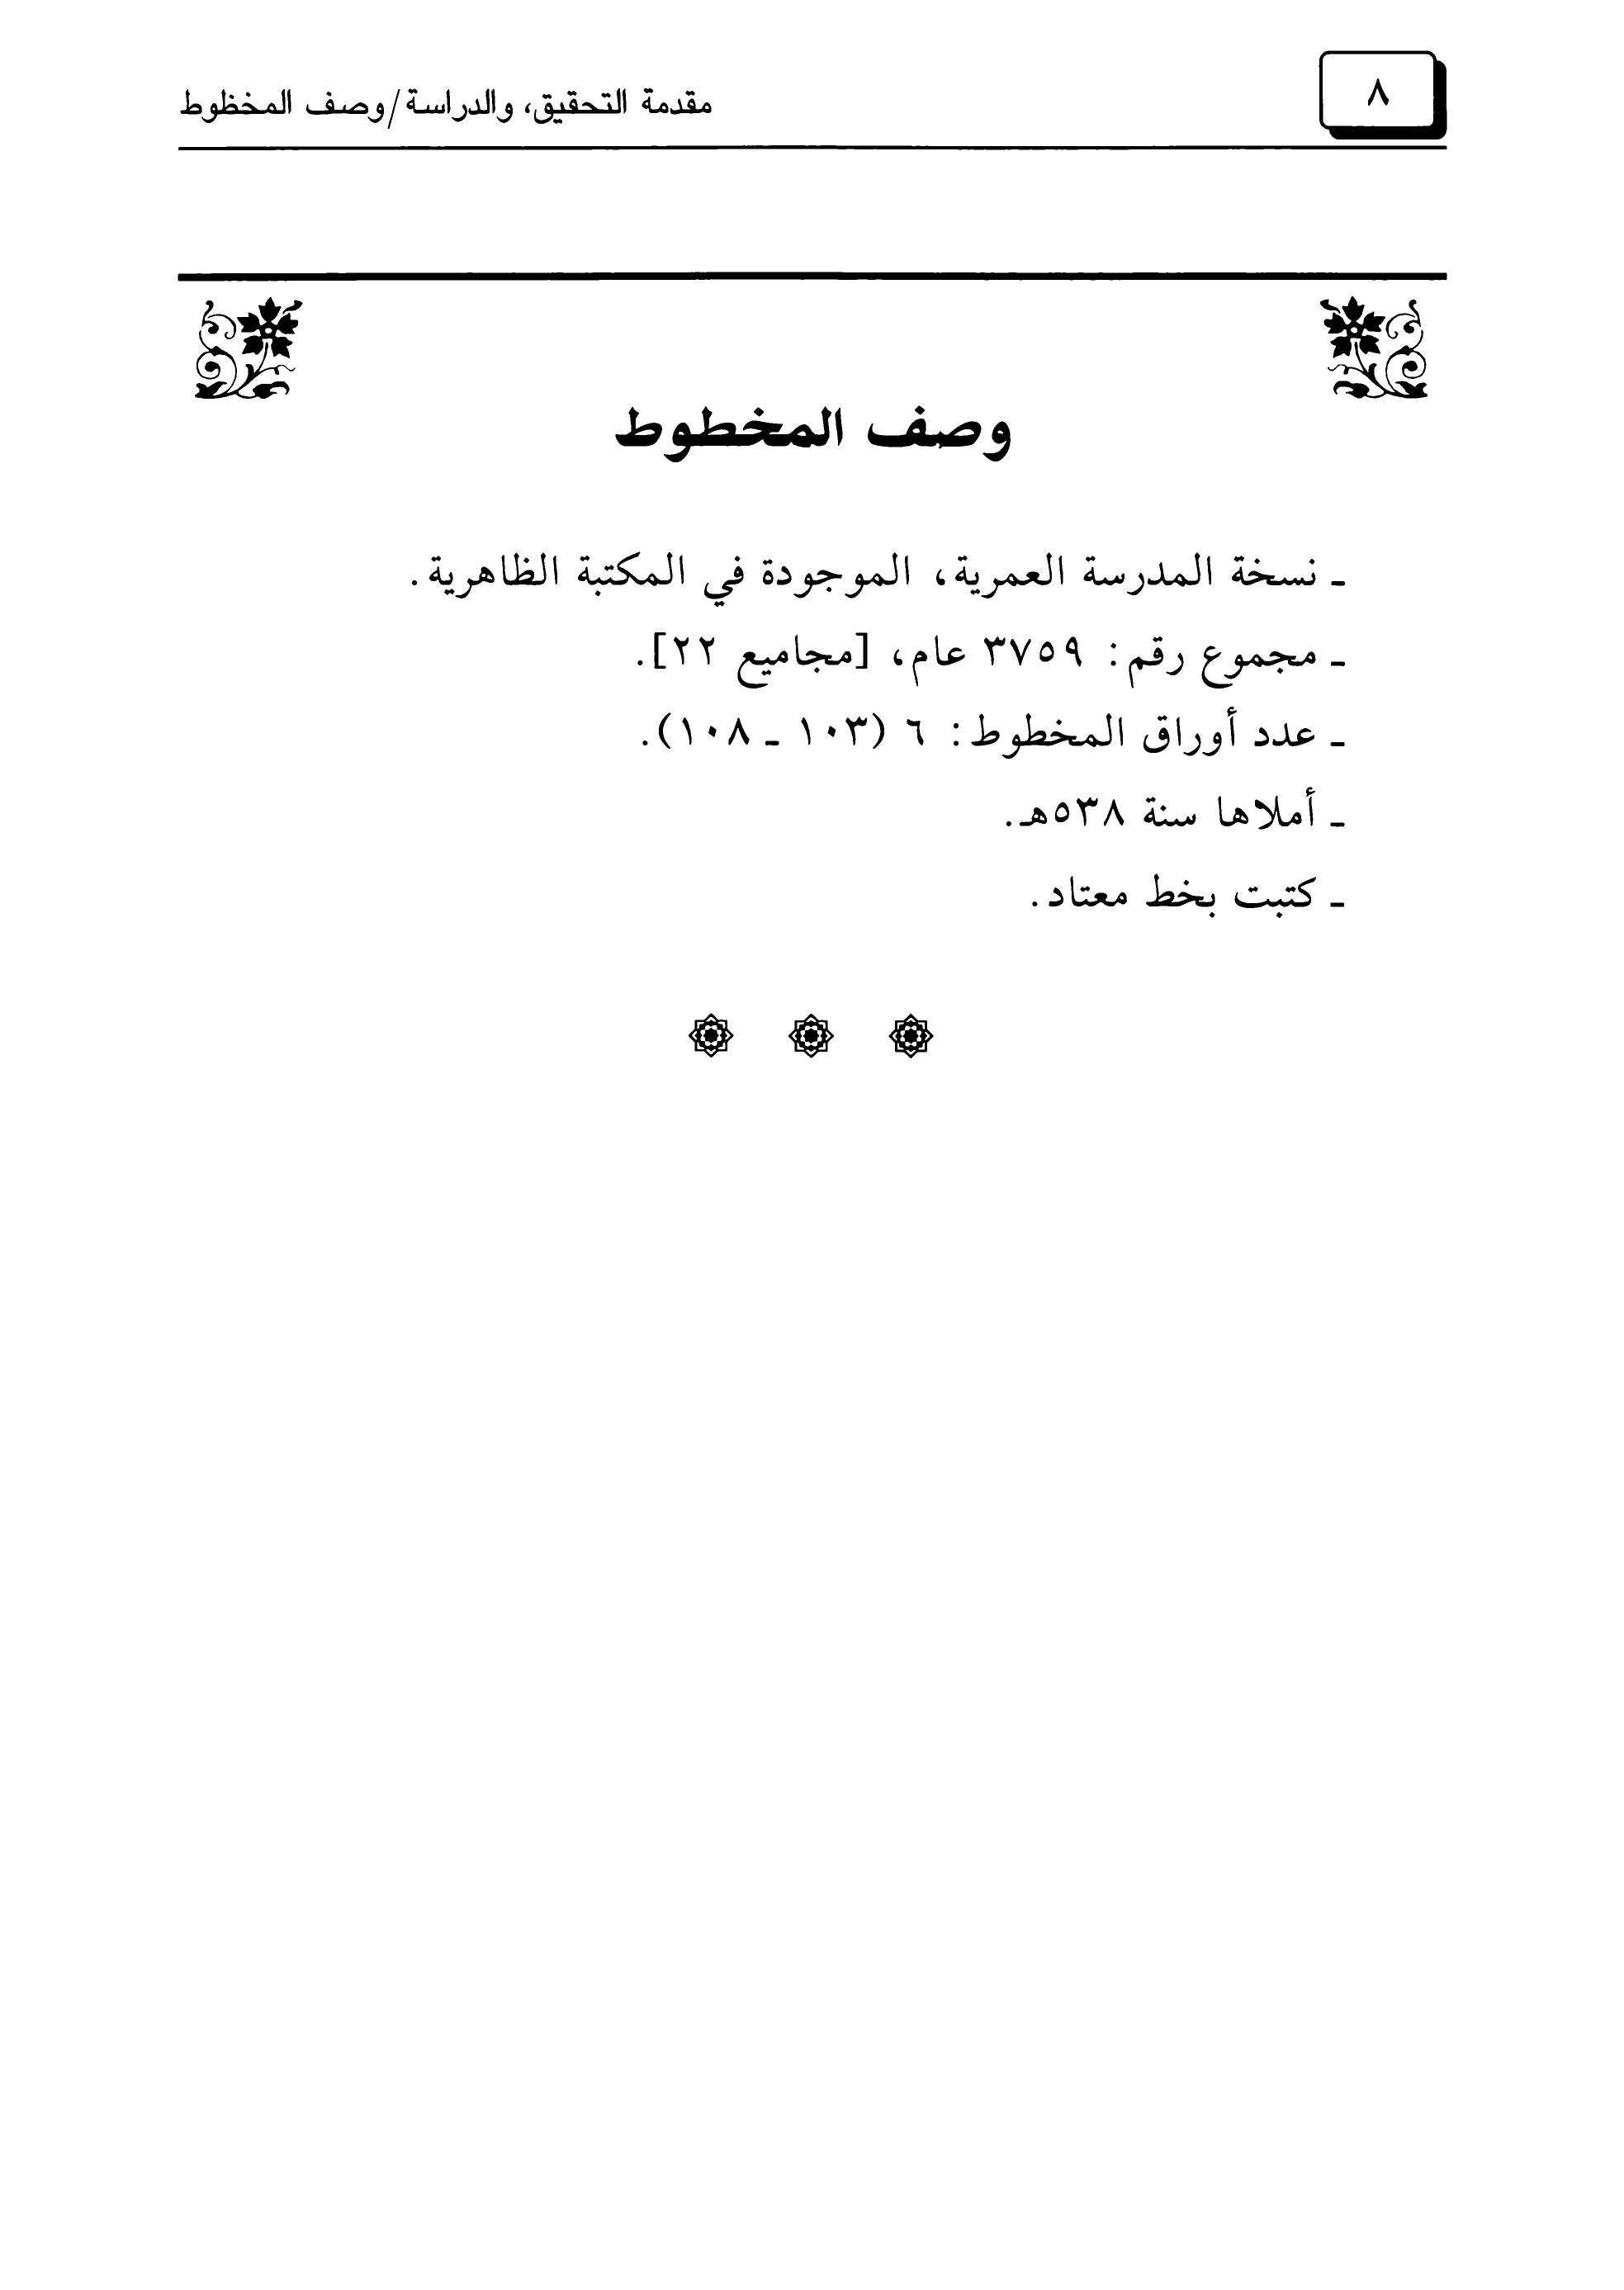 ٨
مقدمة التحقيق، والدراسة/وصف المخظوط
وصف المخطوط
ـ نسخة المدرسة العمرية، الموجودة في المكتبة الظاهرية.
ـ مجموع رقم: ٣٧٥٩ عام، [مجاميع ٢٢].
ـ عدد أوراق المخطوط: ٦ (١٠٣ ـ ١٠٨).
ـ أملاها سنة ٥٣٨هـ.
ـ كتبت بخط معتاد.